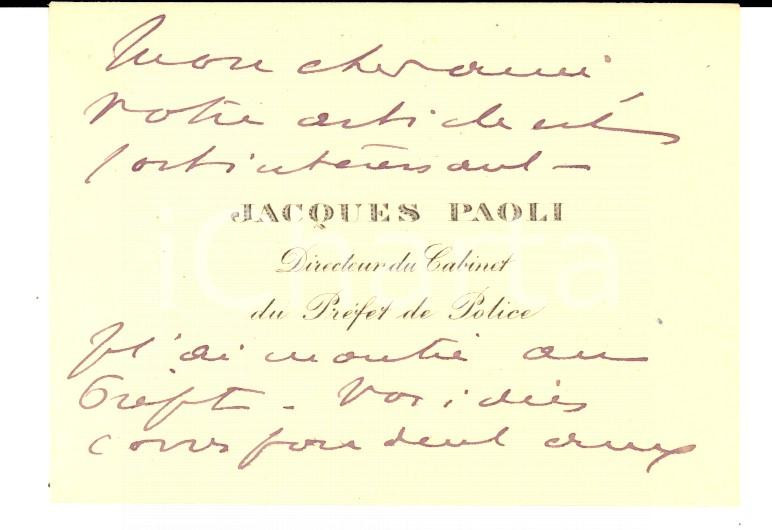 Mon cher ami,
Votre article est
fort intéressant –
JACQUES PAOLI
Directeur du Cabinet
du Préfet de Police
Je l'ai montré au
Préfet – Vos idées
correspondent aux
iCharta